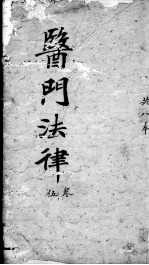 共八本
醫門法律
卷伍